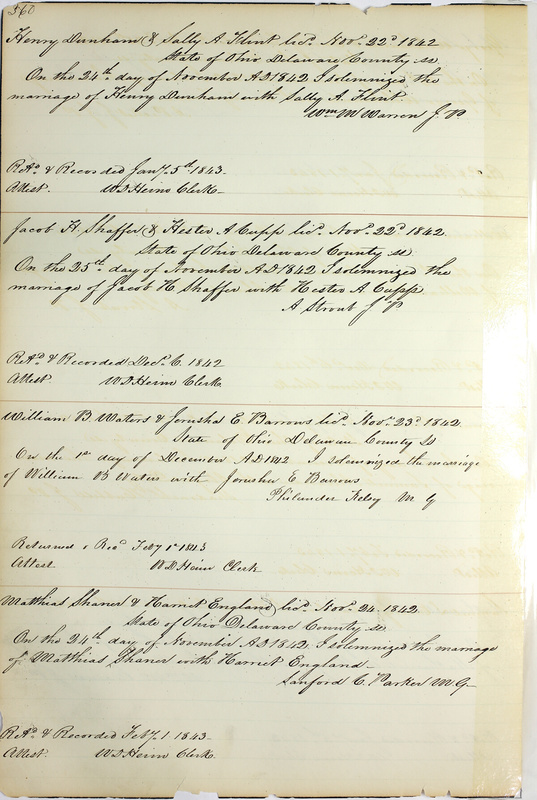 360
Henry Dunham & Sally A. Flint licd. Novr. 22d. 1842
State of Ohio Delaware County ss
On the 24th. day of November A.D 1842 I solemnized the
marriage of Henry Dunham with Sally A. Flint.
Wm M Warren J. P
Retd. & Recorded Jany. 5th 1843.
Attest. W D Heim Clerk
Jacob H. Shaffer & Hester A Cupps licd. Novr. 22d. 1842
State of Ohio Delaware County ss
On the 25th. day of November A.D 1842 I solemnized the
marriage of Jacob H. Shaffer with Hester A. Cupps
A Stroub J P
Retd. & Recorded Decr. 6. 1842
Attest. W D Heim Clerk
William B. Waters & Jerusha E. Barrows licd. Novr. 23d. 1842.
State of Ohio Delaware County SS
On the 1st day of December A.D 1842 I solemnized the marriage
of William B Waters with Jerusha E Barrows
Philander Kelsy M G
Returned & Recd Feby 1st 1843
Attest W D Heim Clerk
Matthias Shaner & Harriet England licd. Novr. 24. 1842.
State of Ohio Delaware County ss
On the 24th day of November A.D 1842. I solemnized the marriage
of Matthias Shaner with Harriet England
Sanford C. Parker M G
Retd. & Recorded Feby. 1. 1843.
Attest. W D Heim Clerk